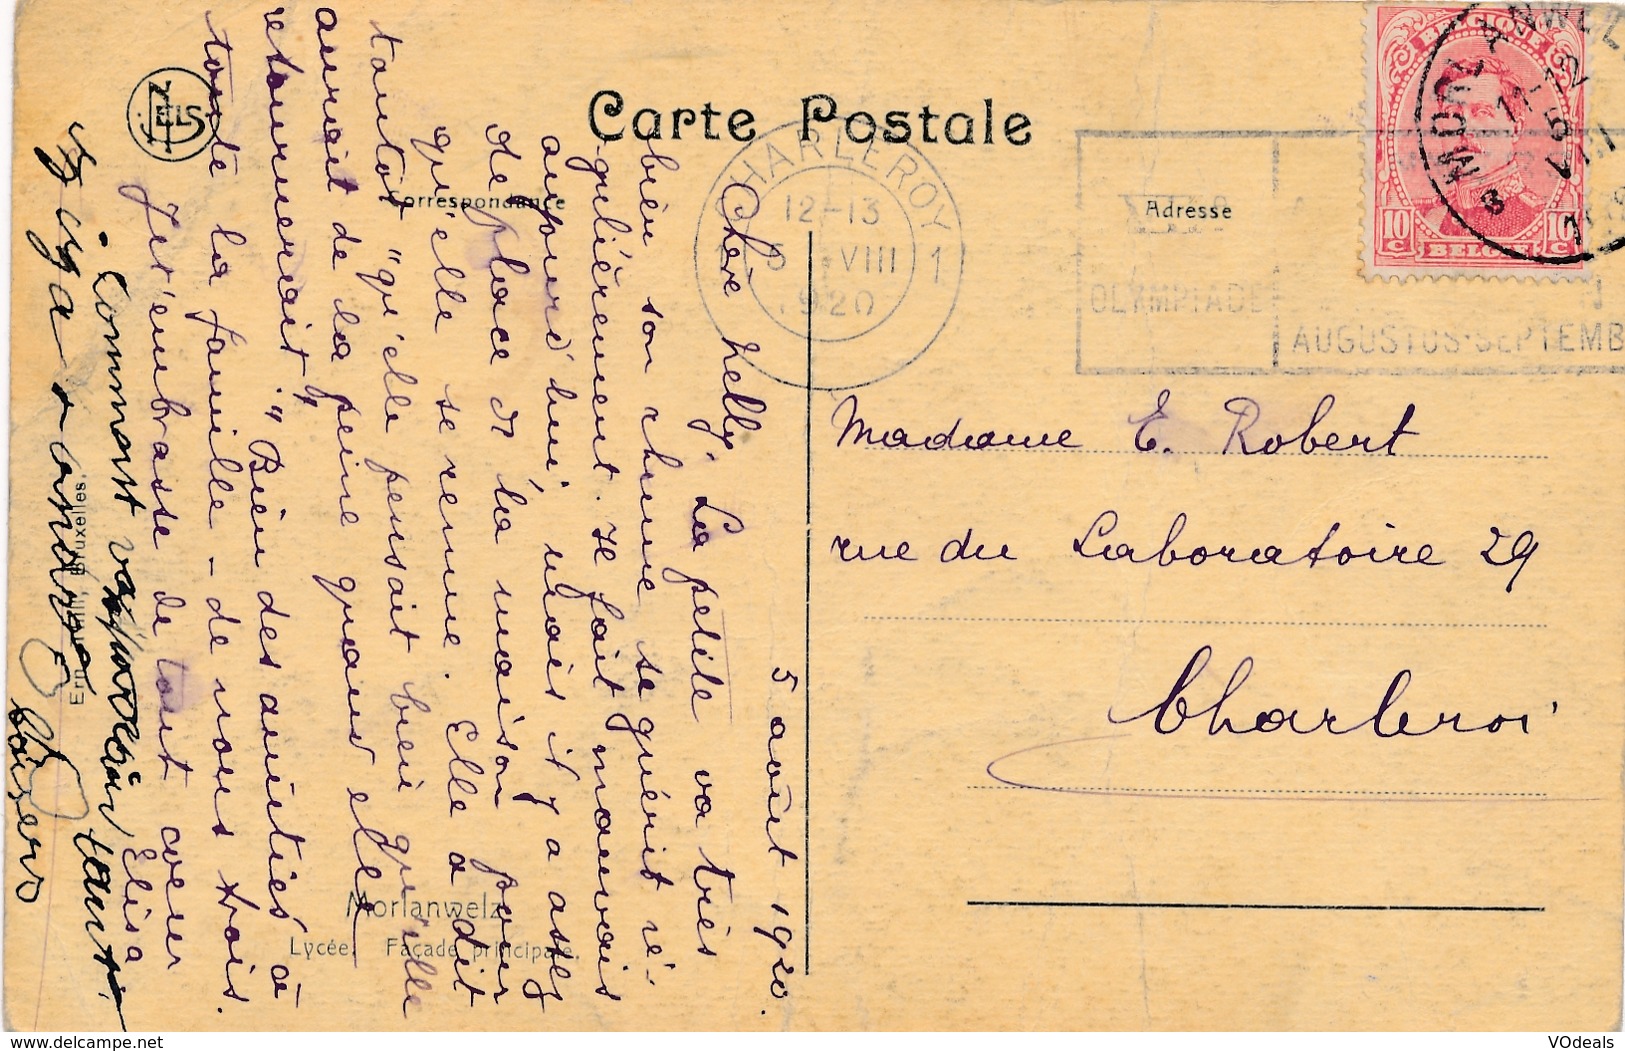 Carte Postale
Correspondance
Adresse
NELS
BELGIQUE
10 C
10 C
BELGIË
CHARLEROY
12-13
VIII
1920
1
OLYMPIADE
AUGUSTUS-SEPTEMB
MORLANWELZ
Madame E. Robert
rue du Laboratoire 29
Charleroi
5 août 1920.
Chère Nelly, La petite va très
bien son rhume se guérit ré-
gulièrement. Il fait mauvais
aujourd'hui, mais il y a assez
de place à la maison pour
qu'elle se remue. Elle a dit
tantôt "qu'elle pensait bien qu'elle
aurait de la peine quand elle
retournerait". Bien des amitiés à
toute la famille - de nous trois.
Je t'embrasse de tout cœur
Elisa
Comment va
baisers
Ern. Thill, Bruxelles.
Morlanwelz
Lycée. Façade principale.
www.delcampe.net
VOdeals